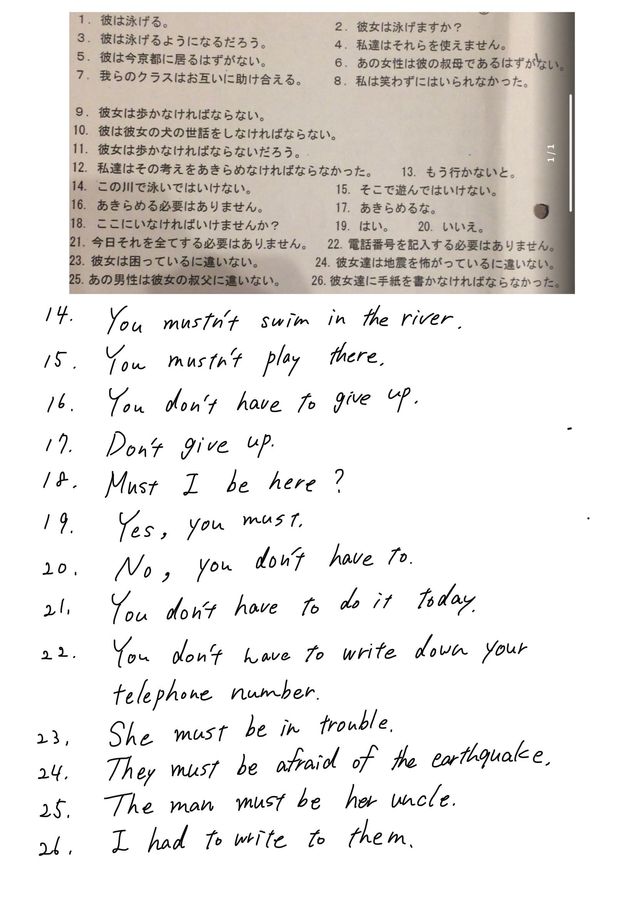 1. 彼は泳げる。
2. 彼女は泳げますか？
3. 彼は泳げるようになるだろう。
4. 私達はそれらを使えません。
5. 彼は今京都に居るはずがない。
6. あの女性は彼の叔母であるはずがない。
7. 我らのクラスはお互いに助け合える。
8. 私は笑わずにはいられなかった。
9. 彼女は歩かなければならない。
10. 彼は彼女の犬の世話をしなければならない。
11. 彼女は歩かなければならないだろう。
12. 私達はその考えをあきらめなければならなかった。
13. もう行かないと。
14. この川で泳いではいけない。
15. そこで遊んではいけない。
16. あきらめる必要はありません。
17. あきらめるな。
18. ここにいなければいけませんか？
19. はい。
20. いいえ。
21. 今日それを全てする必要はありません。
22. 電話番号を記入する必要はありません。
23. 彼女は困っているに違いない。
24. 彼女達は地震を怖がっているに違いない。
25. あの男性は彼女の叔父に違いない。
26. 彼女達に手紙を書かなければならなかった。
1/1
14. You mustn't swim in the river.
15. You mustn't play there.
16. You don't have to give up.
17. Don't give up.
18. Must I be here?
19. Yes, you must.
20. No, you don't have to.
21. You don't have to do it today.
22. You don't have to write down your
telephone number.
23. She must be in trouble.
24. They must be afraid of the earthquake.
25. The man must be her uncle.
26. I had to write to them.